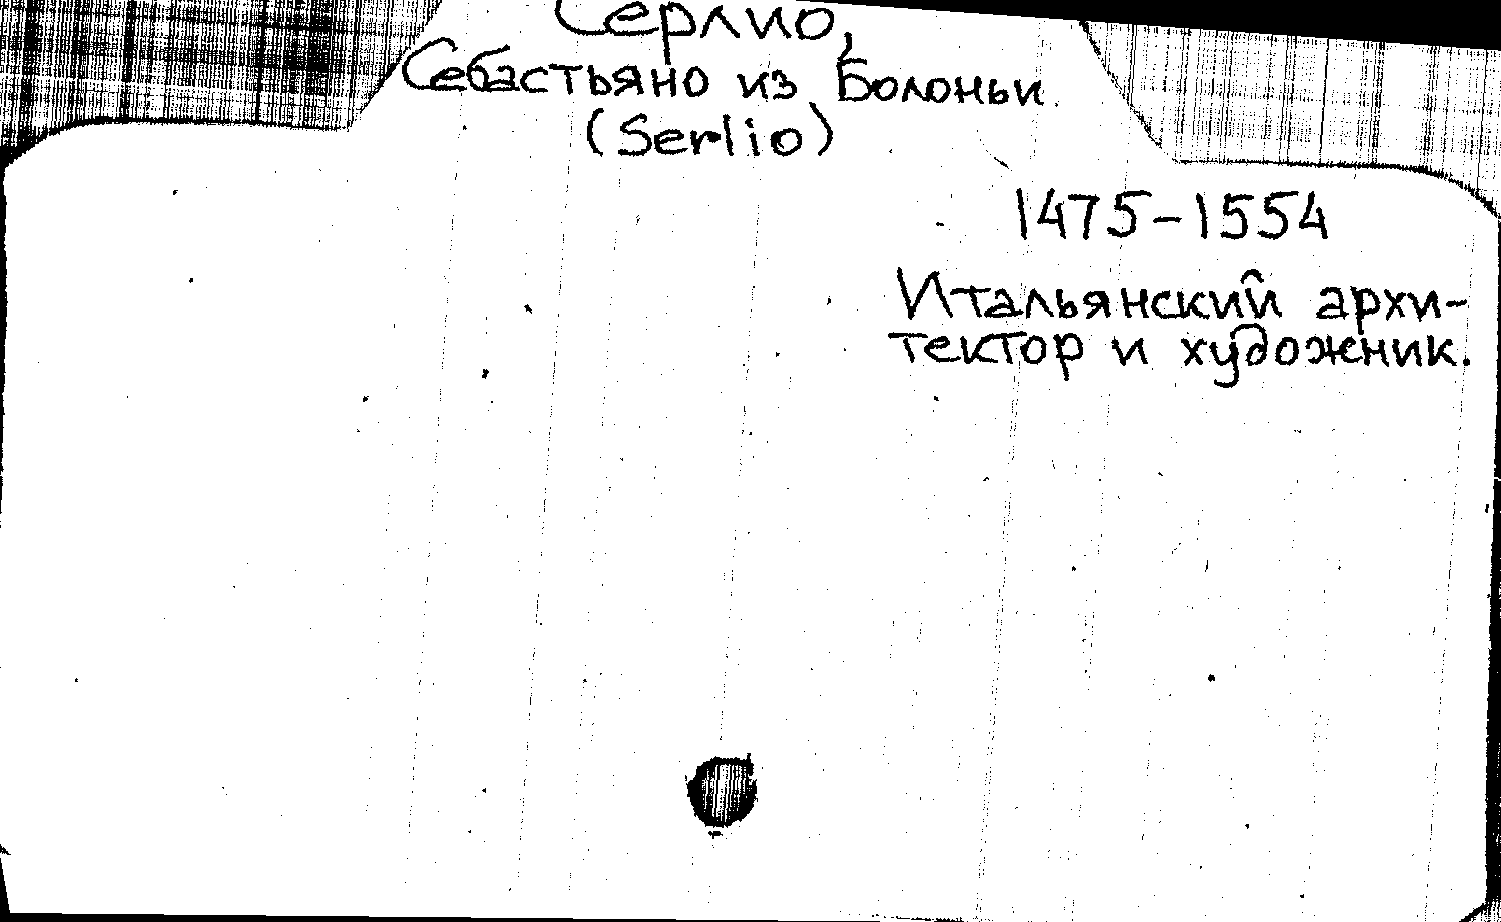 Серлио,
Себастьяно из Болоньи.
(Serlio)
1475-1554
Итальянский архи-
тектор и художник.